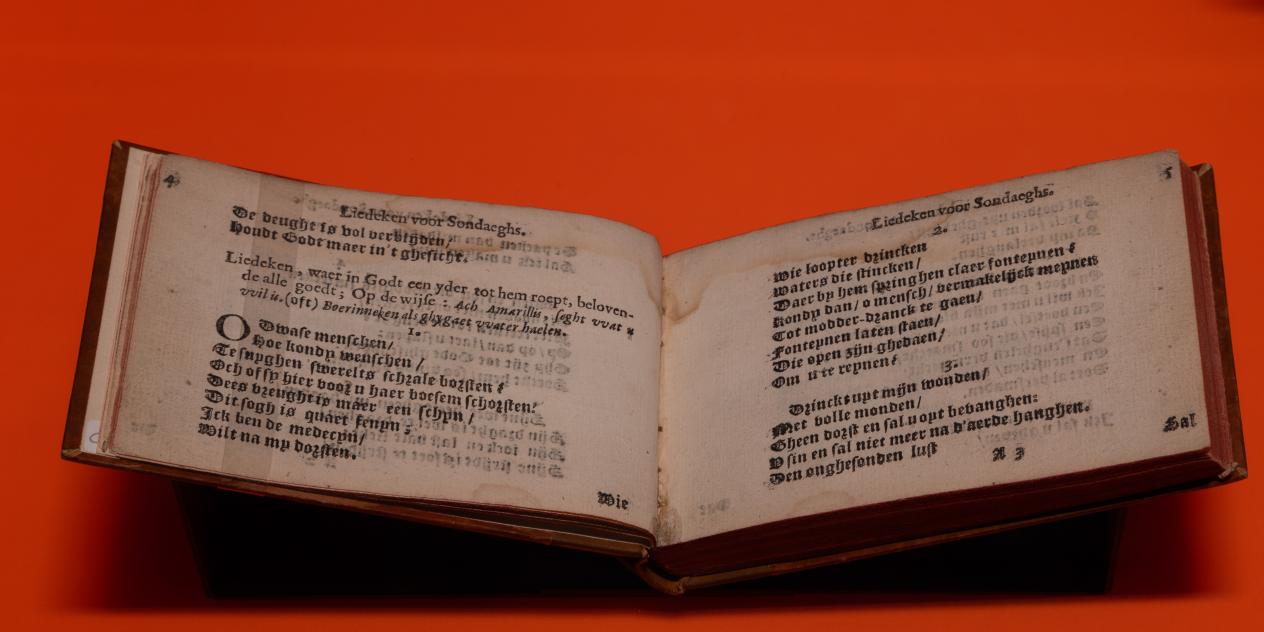 4
Liedeken voor Sondaeghs.
De deught is vol verblijden/
Houdt Godt maer in't ghesicht.
Liedeken, waer in Godt een yder tot hem roept, beloven-
de alle goedt; Op de wijse: Ach Amarillis, seght vvat u
vvil is. (oft) Boerinneken als ghy gaet vvater haelen.
1.
O Dwase menschen/
Hoe kondy wenschen/
Te supghen swerelts schrale borsten?
Och of sy hier voor u haer boesem schorsten!
Dees vreught is maer een schyn/
Dit sogh is quaet fenyn;
Ick ben de medecyn/
Wilt na my dorsten.
Wie
5
Liedeken voor Sondaeghs.
2.
Wie loopter drincken
Waters die stincken/
Daer by hem springhen claer fonteynen?
Kondy dan/ o mensch/ vermakelijck meynen
Tot modder-dranck te gaen/
Fonteynen laten staen/
Die open zijn ghedaen/
Om u te reynen?
3.
Drinckt uyt mijn wonden/
Met volle monden/
Gheen dorst en sal u opt bevanghen:
V sin en sal niet meer na d'aerde hanghen.
Den onghesonden lust
A 3
Sal